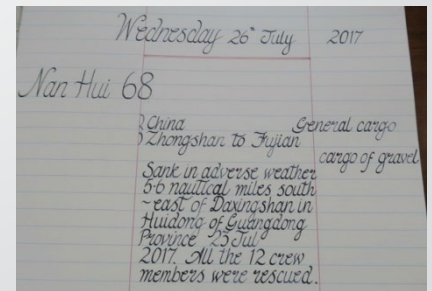 Wednesday 26th July 2017
Nan Hui 68
China General cargo
Zhongshan to Fujian
cargo of gravel
Sank in adverse weather
5.6 nautical miles south
~east of Daxingshan in
Huidong of Guangdong
Province 25 Jul
2017. All the 12 crew
members were rescued.